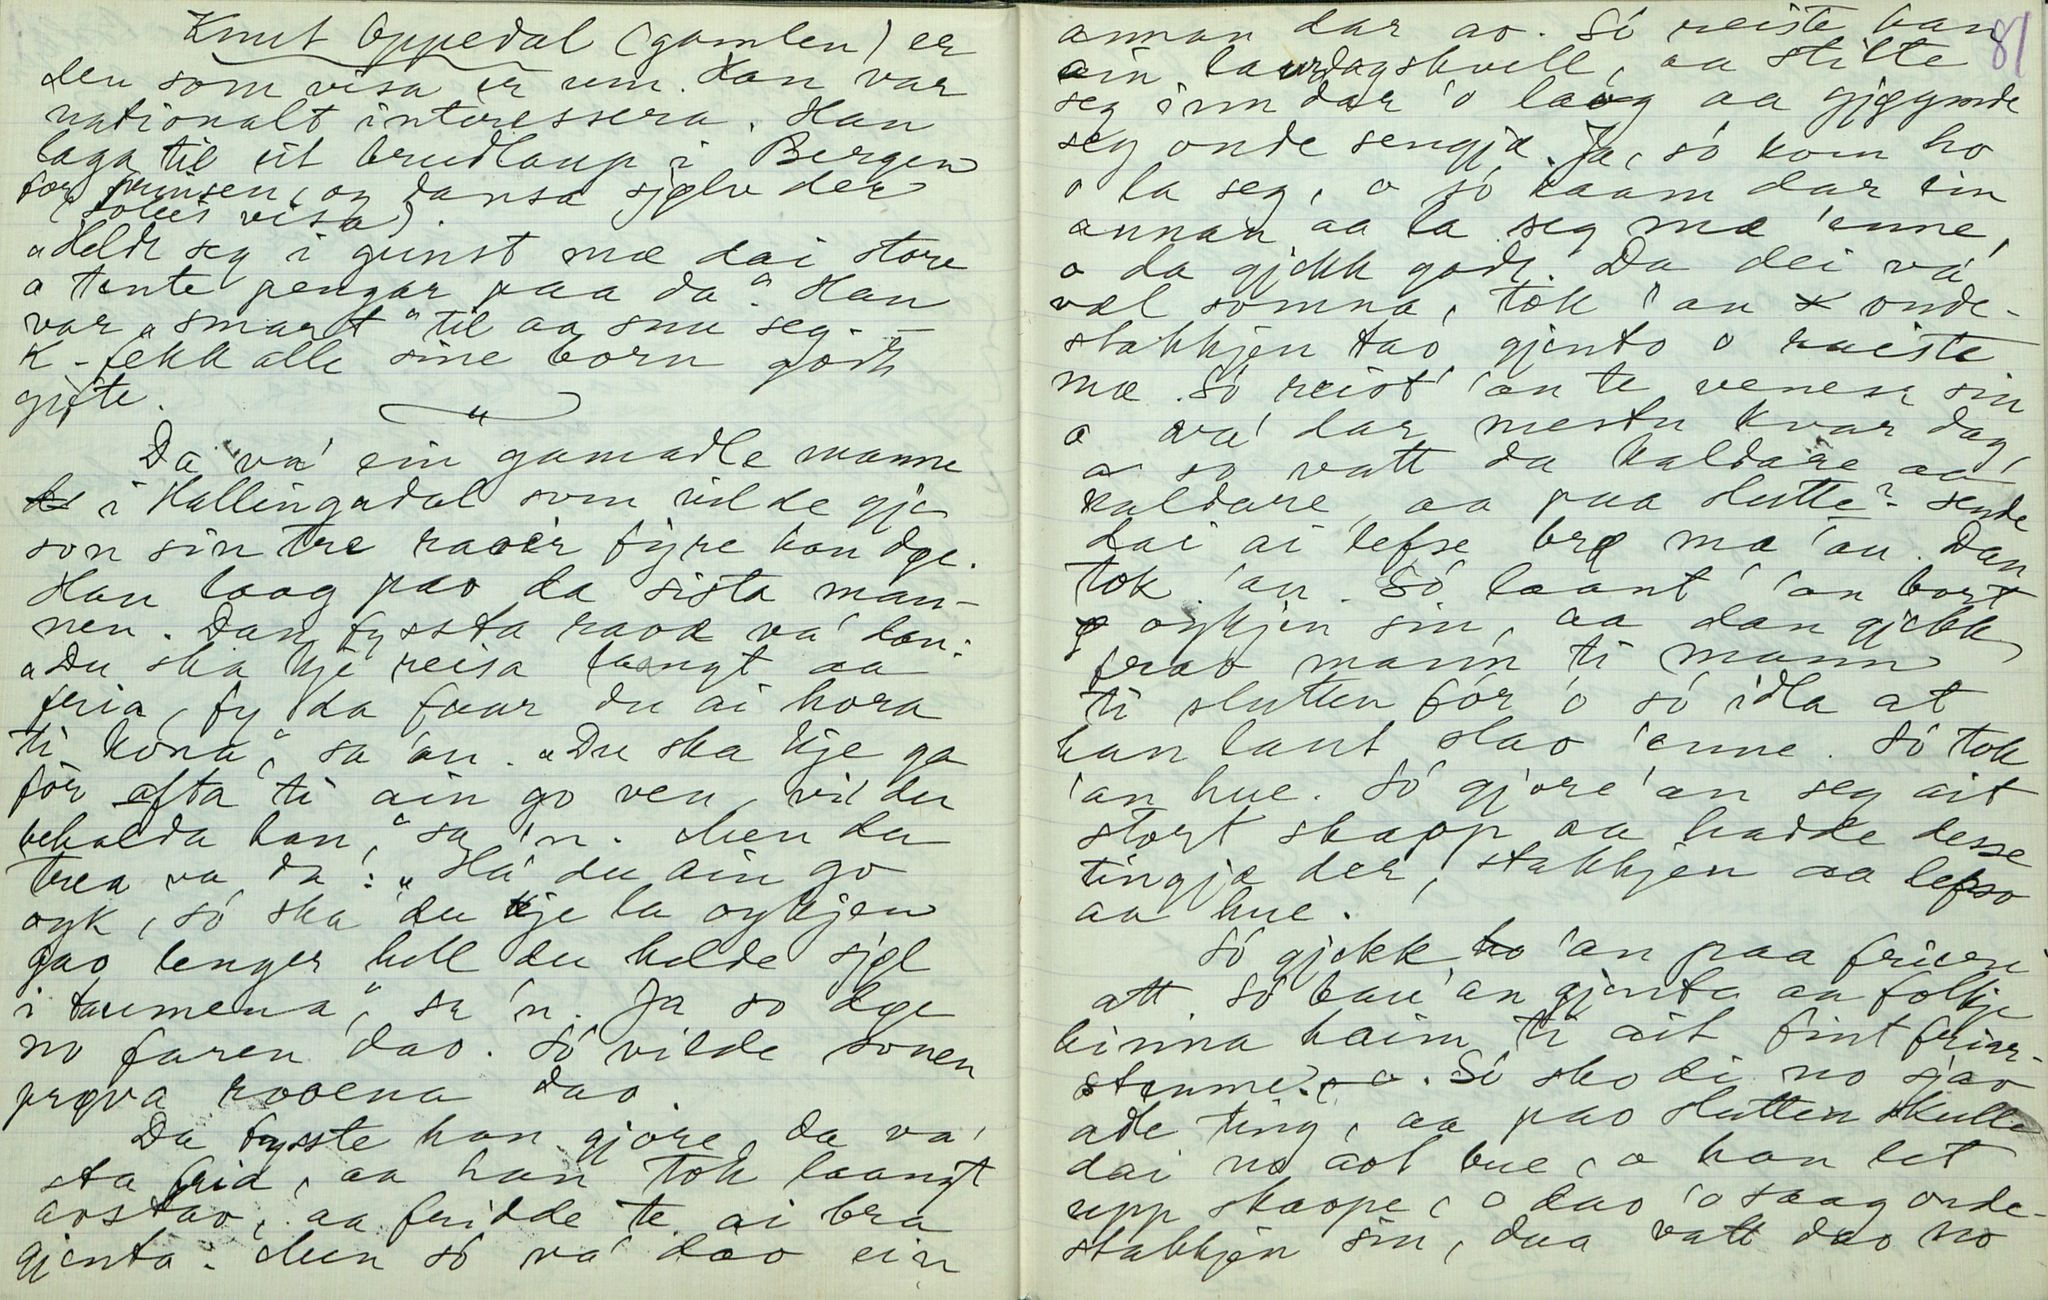 Knut Oppedal (gamlen) er
den som visa er um. Han var
nationalt interessera. Han
laga til eit brudlaup i Bergen
for prinsen, og dansa sjølv der
(Solveis visa).
"Heldt seg i gunst mæ dai store
o tente pengar paa da". Han
var "smart" til aa snu seg. –
K - fekk alle sine born godt
gifte.
Da va' ein gamadle manne
i Hallingadal som vilde gje
son sin tre raoir fyre han døe.
Han laag pao da sista man-
nen. Dan fyssta raoe va' dan:
"Du ska kje reisa langt aa
fria, fy da faar du ai hora
ti kona", sa 'an. "Du ska kje ga
før ofta ti ain go ven, vi' du
behalda han," sa 'n. Men da
trea va da: "Ha' du ain go
øyk, so' ska du kje la øykjen
gao lenger hell du helde sjøl
i taumena", sa 'n. Ja so døe
no faren dao. So' vilde sonen
prøva raoena dao.
Da fysste han gjore, da va'
sta fria, aa han tok laangt
aosta o, aa fridde te ai bra
gjenta. Men so' va' dao ein
81
annan dar ao. So' reiste han
ein laurdagskvell, aa stilte
seg inn dar 'o laog aa gjøymde
seg onde sengja. Ja, so' kom ho
o la seg, o so' kaam dar ein
annan aa la seg mæ 'enne,
o da gjekk godt. Da dei va'
vel somna, tok 'an onde-
stakkjen tao gjento o reiste
mæ. So' reist' 'an te venen sin
o va' dar mestu kvar dag,
o so vatt da kaldare aa
kaldare, aa paa slutte? sende
dai ai lefse brø mæ 'an. Dan
tok 'an. So' laant' 'an bort
øykjen sin, aa dan gjekk
frao mann ti mann
ti slutten for 'o so' idla at
han laut slao 'enne. So' tok
'an hue. So' gjore 'an seg ait
stort skaap aa hadde desse
tingja der, stakkjen aa lefso
aa hue.
So' gjekk 'an paa frieri
att. So' bau 'an gjenta aa folkje
hinna haim ti ait fint friar-
stemne. So' sko di no sjao
ade ting, aa pao slutten skulle
dai no aot bue, o han let
upp skaape, o dao 'o saag onde-
stakkjen sin, daa vatt dao no